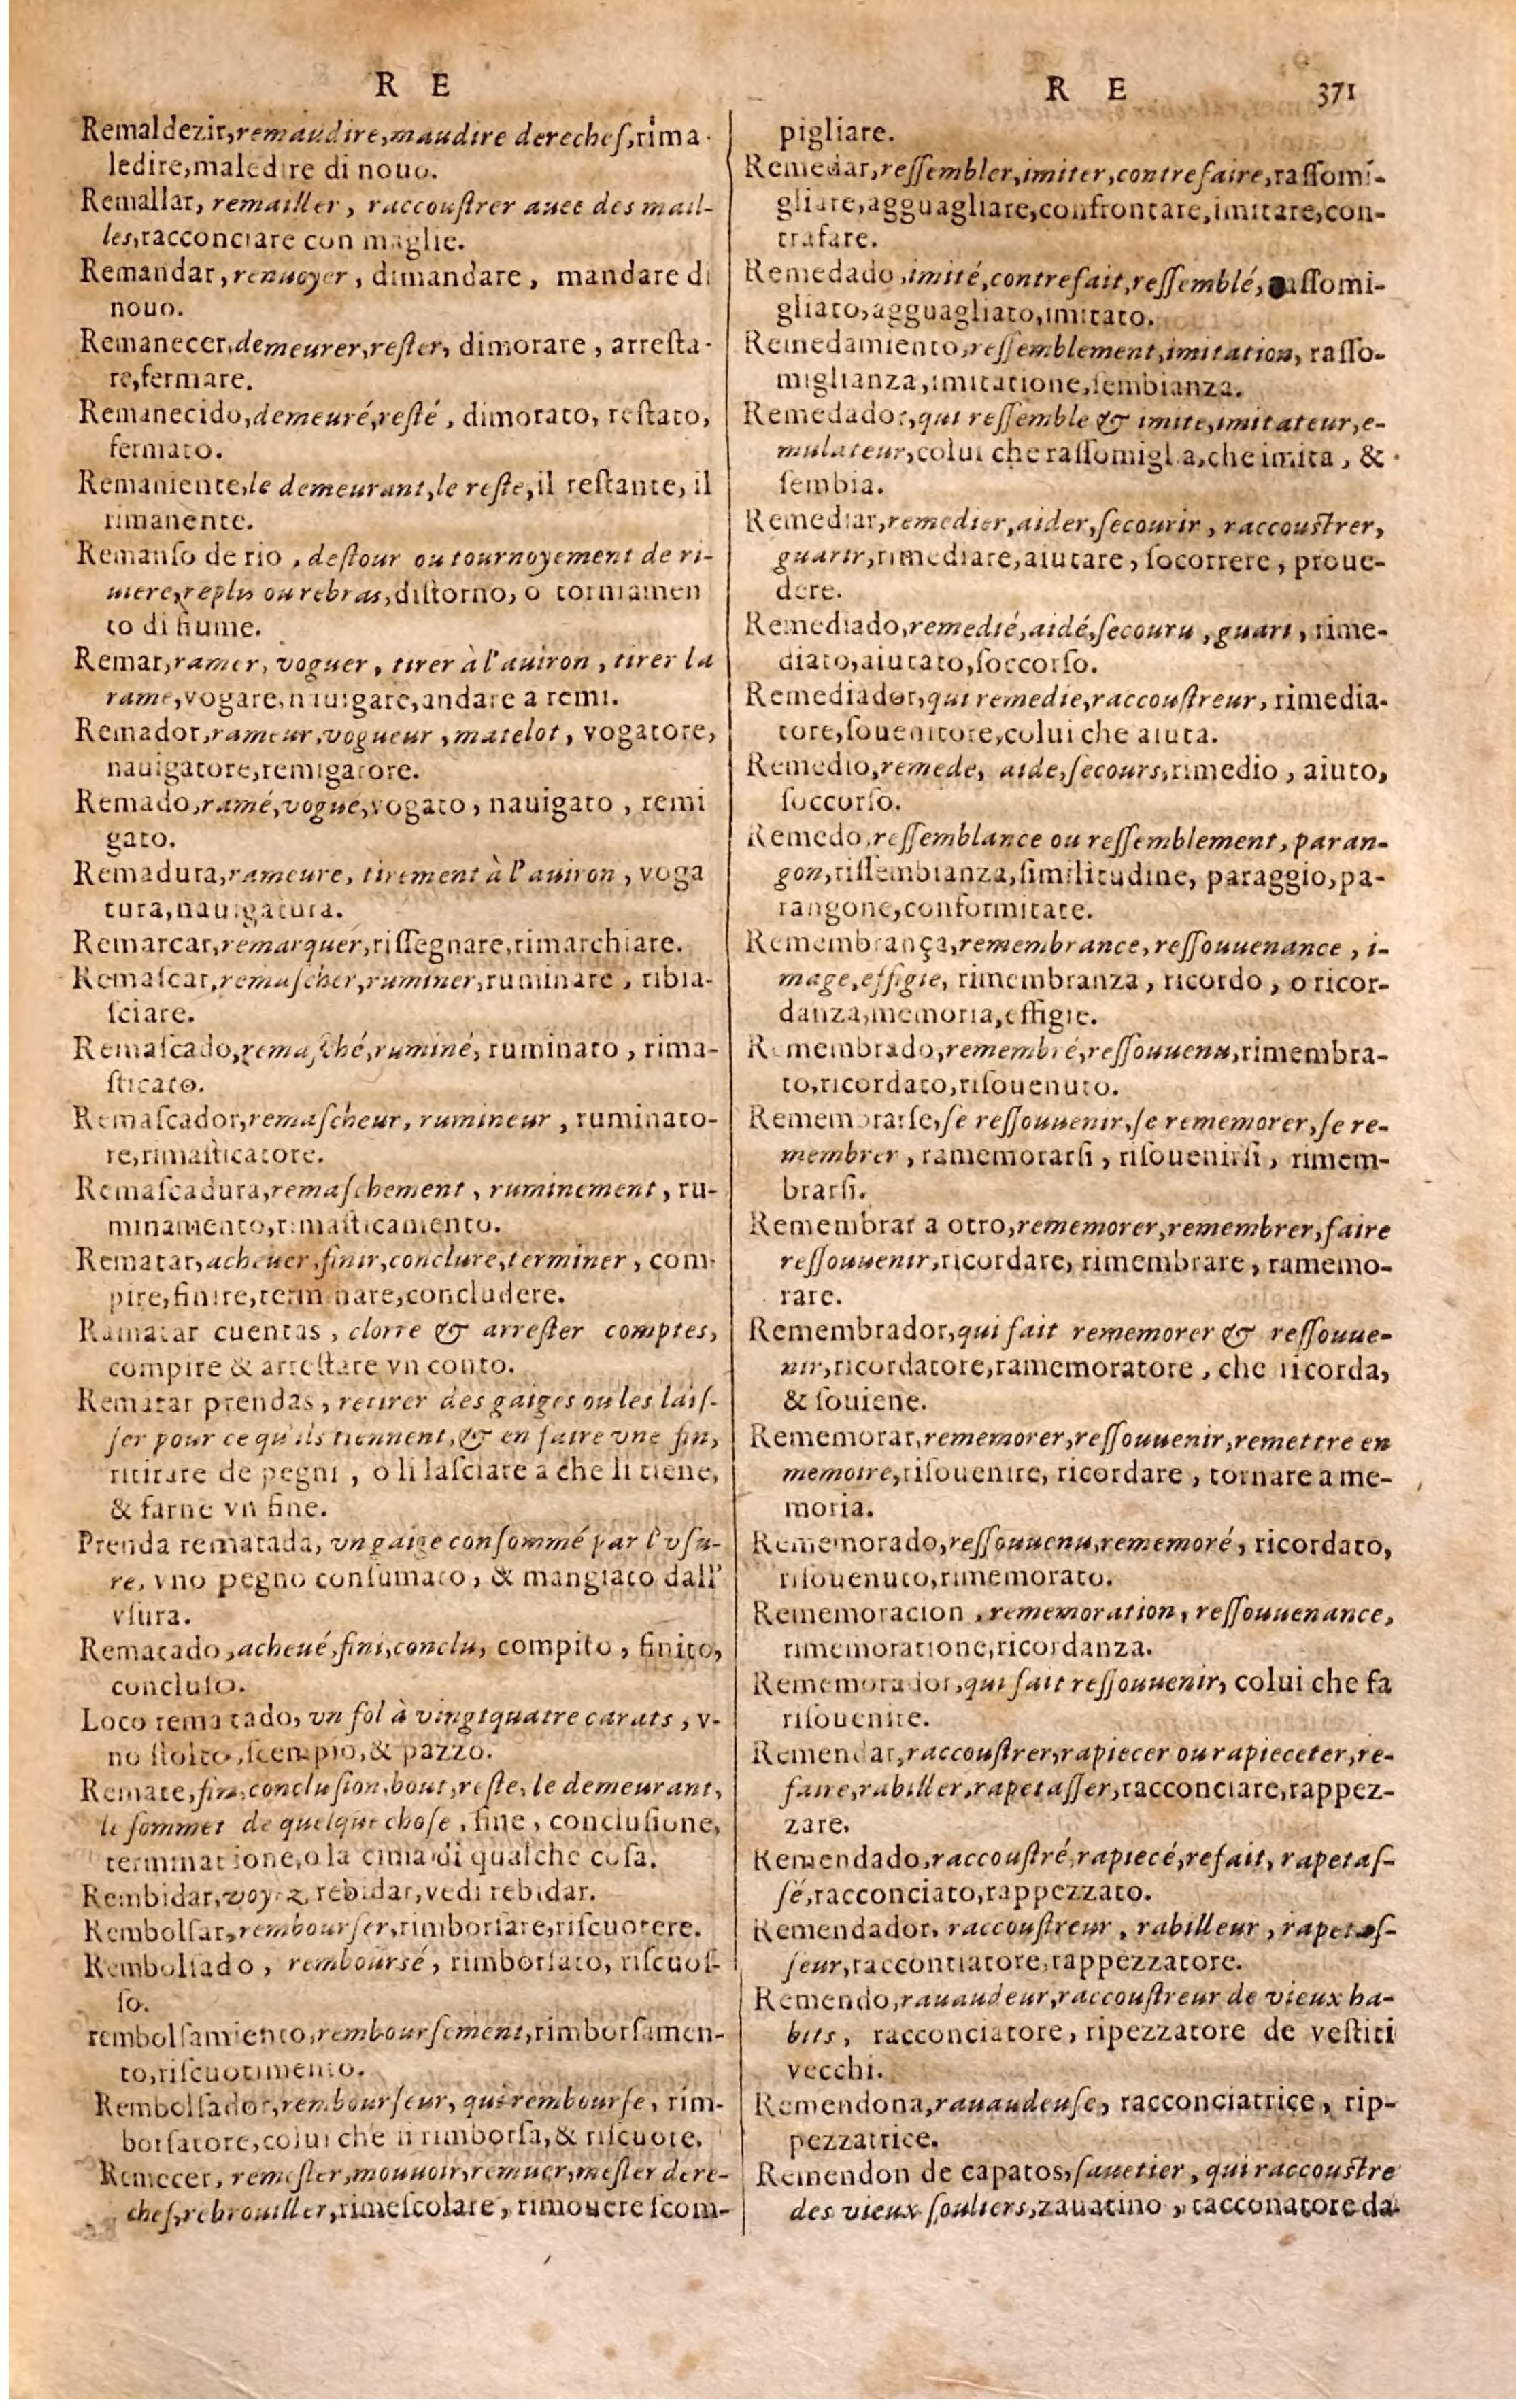 R E
Remaldezir, remaudire, maudire derechef, rima-
ledire, maledire di nouo.
Remallar, remailler, raccouſtrer auec des mail-
les, racconciare con maglie.
Remandar, renuoyer, dimandare, mandare di
nouo.
Remanecer, demeurer, reſter, dimorare, arreſta-
re, fermare.
Remanecido, demeuré, reſté, dimorato, reſtato,
fermato.
Remaniente, le demeurant, le reſte, il reſtante, il
rimanente.
Remanſo de rio, deſtour ou tournoyement de ri-
uiere, replis ou rebras, diſtorno, o torniamen
to di fiume.
Remar, ramer, voguer, tirer à l'auiron, tirer la
rame, vogare, nauigare, andare a remi.
Remador, rameur, vogueur, matelot, vogatore,
nauigatore, remigatore.
Remado, ramé, vogué, vogato, nauigato, remi
gato.
Remadura, rameure, tirement à l'auiron, voga
tura, nauigatura.
Remarcar, remarquer, riſſegnare, rimarchiare.
Remaſcar, remaſcher, ruminer, ruminare, ribia-
ſciare.
Remaſcado, remaſché, ruminé, ruminato, rima-
ſticato.
Remaſcador, remaſcheur, rumineur, ruminato-
re, rimaſticatore.
Remaſcadura, remaſchement, ruminement, ru-
minamento, rimaſticamento.
Rematar, acheuer, finir, conclure, terminer, com-
pire, finire, terminare, concludere.
Ramatar cuentas, clorre & arreſter comptes,
compire & arreſtare vn conto.
Rematar prendas, retirer des gaiges ou les laiſ-
ſer pour ce qu'ils tiennent, & en faire vne fin,
ritirare de pegni, o li laſciare a che li tiene,
& farne vn fine.
Prenda rematada, vn gaige conſommé par l'vſu-
re, vno pegno conſumato, & mangiato dall'
vſura.
Rematado, acheué, fini, conclu, compito, finito,
concluſo.
Loco rematado, vn fol à vingtquatre carats, v-
no ſtolto, ſcempio, & pazzo.
Remate, fin, concluſion, bout, reſte, le demeurant,
le ſommet de quelque choſe, fine, concluſione,
terminatione, o la cima di qualche coſa.
Rembidar, voyez rebidar, vedi rebidar.
Rembolſar, rembourſer, rimborſare, riſcuotere.
Rembolſado, remboursé, rimborſato, riſcuoſ-
ſo.
rembolſamiento, rembourſement, rimborſamen-
to, riſcuotimento.
Rembolſador, rembourſeur, qui rembourſe, rim-
borſatore, colui che ti rimborſa, & riſcuote.
Remecer, remeſler, mouuoir, remuer, meſler dere-
chef, rebrouiller, rimeſcolare, rimouere ſcom-
R E 371
pigliare.
Remedar, reſſembler, imiter, contrefaire, raſſomi-
gliare, agguagliare, confrontare, imitare, con-
trafare.
Remedado, imité, contrefait, reſſemblé, raſſomi-
gliato, agguagliato, imitato.
Remedamiento, reſſemblement, imitation, raſſo-
miglianza, imitatione, ſembianza.
Remedador, qui reſſemble & imite, imitateur, e-
mulateur, colui che raſſomiglia, che imita, &
ſembia.
Remediar, remedier, aider, ſecourir, raccouſtrer,
guarir, rimediare, aiutare, ſocorrere, proue-
dere.
Remediado, remedié, aidé, ſecouru, guari, rime-
diato, aiutato, ſoccorſo.
Remediador, qui remedie, raccouſtreur, rimedia-
tore, ſouenitore, colui che aiuta.
Remedio, remede, aide, ſecours, rimedio, aiuto,
ſoccorſo.
Remedo, reſſemblance ou reſſemblement, paran-
gon, riſſembianza, ſimilitudine, paraggio, pa-
rangone, conformitate.
Remembrança, remembrance, reſſouuenance, i-
mage, effigie, rimembranza, ricordo, o ricor-
danza, memoria, effigie.
Remembrado, remembré, reſſouuenu, rimembra-
to, ricordato, riſouenuto.
Rememorarſe, ſe reſſouuenir, ſe rememorer, ſe re-
membrer, ramemorarſi, riſouenirſi, rimem-
brarſi.
Remembrar a otro, rememorer, remembrer, faire
reſſouuenir, ricordare, rimembrare, ramemo-
rare.
Remembrador, qui fait rememorer & reſſouue-
nir, ricordatore, ramemoratore, che ricorda,
& ſouiene.
Rememorar, rememorer, reſſouuenir, remettre en
memoire, riſouenire, ricordare, tornare a me-
moria.
Rememorado, reſſouuenu, rememoré, ricordato,
riſouenuto, rimemorato.
Rememoracion, rememoration, reſſouuenance,
rimemoratione, ricordanza.
Rememorador, qui fait reſſouuenir, colui che fa
riſouenire.
Remendar, raccouſtrer, rapiecer ou rapieceter, re-
faire, rabiller, rapetaſſer, racconciare, rappez-
zare.
Remendado, raccouſtré, rapiecé, refait, rapetaſ-
ſé, racconciato, rappezzato.
Remendador, raccouſtreur, rabilleur, rapetaſ-
ſeur, racconciatore, rappezzatore.
Remendo, rauaudeur, raccouſtreur de vieux ha-
bits, racconciatore, ripezzatore de veſtiti
vecchi.
Remendona, rauaudeuſe, racconciatrice, rip-
pezzatrice.
Remendon de capatos, ſauetier, qui raccouſtre
des vieux ſouliers, zauatino, tacconatore da